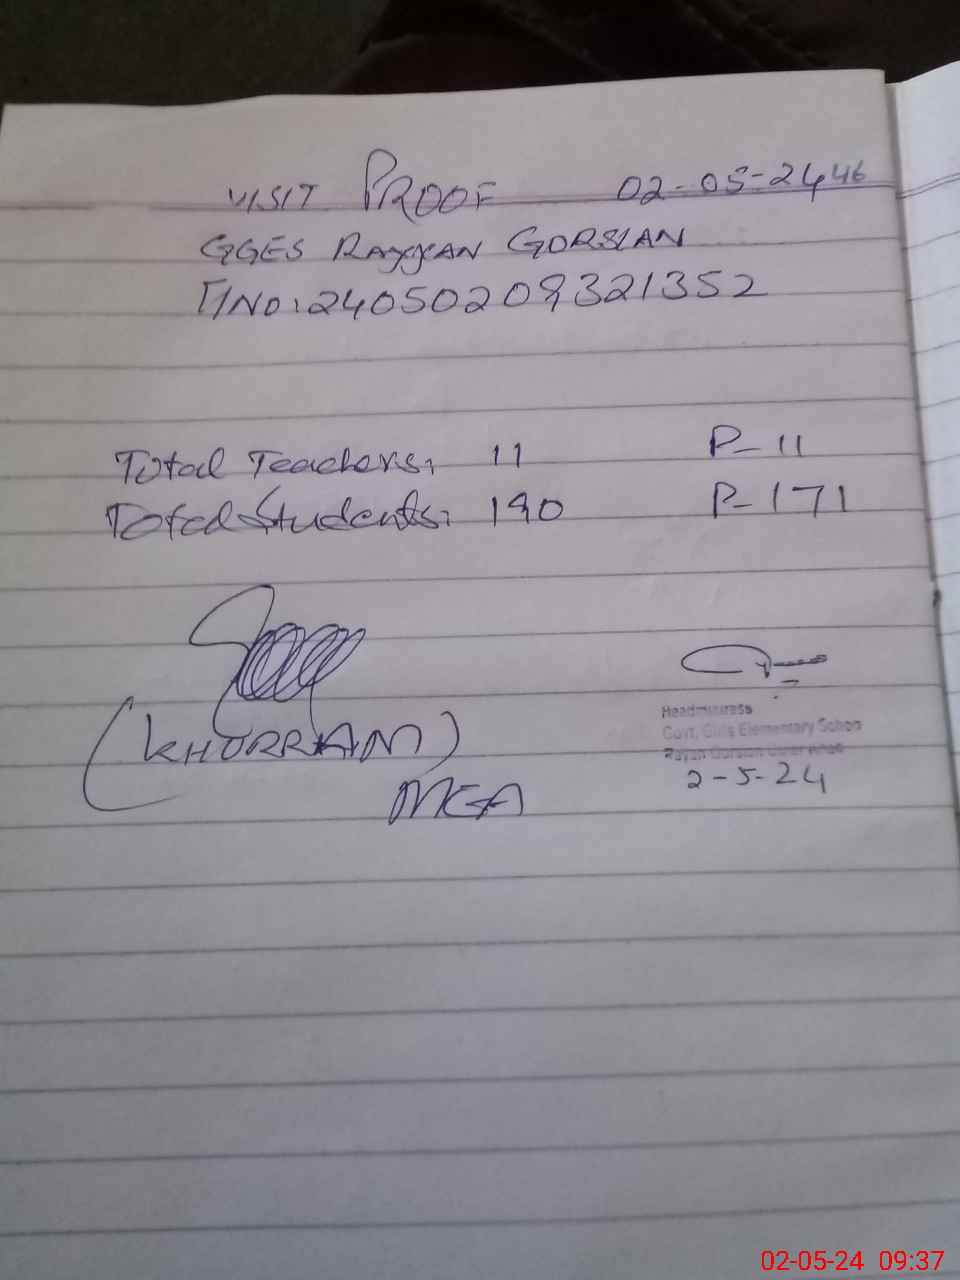 VISIT PROOF 02-05-24 46
GGES RAYYAN GORSIAN
24050209321352
Total Teachers: 11 P-11
Total Students: 190 P-171
(KHURRAM)
MEA
Headmistress
Govt. Girls Elementary School
Rayan Gorsian
2-5-24
02-05-24 09:37